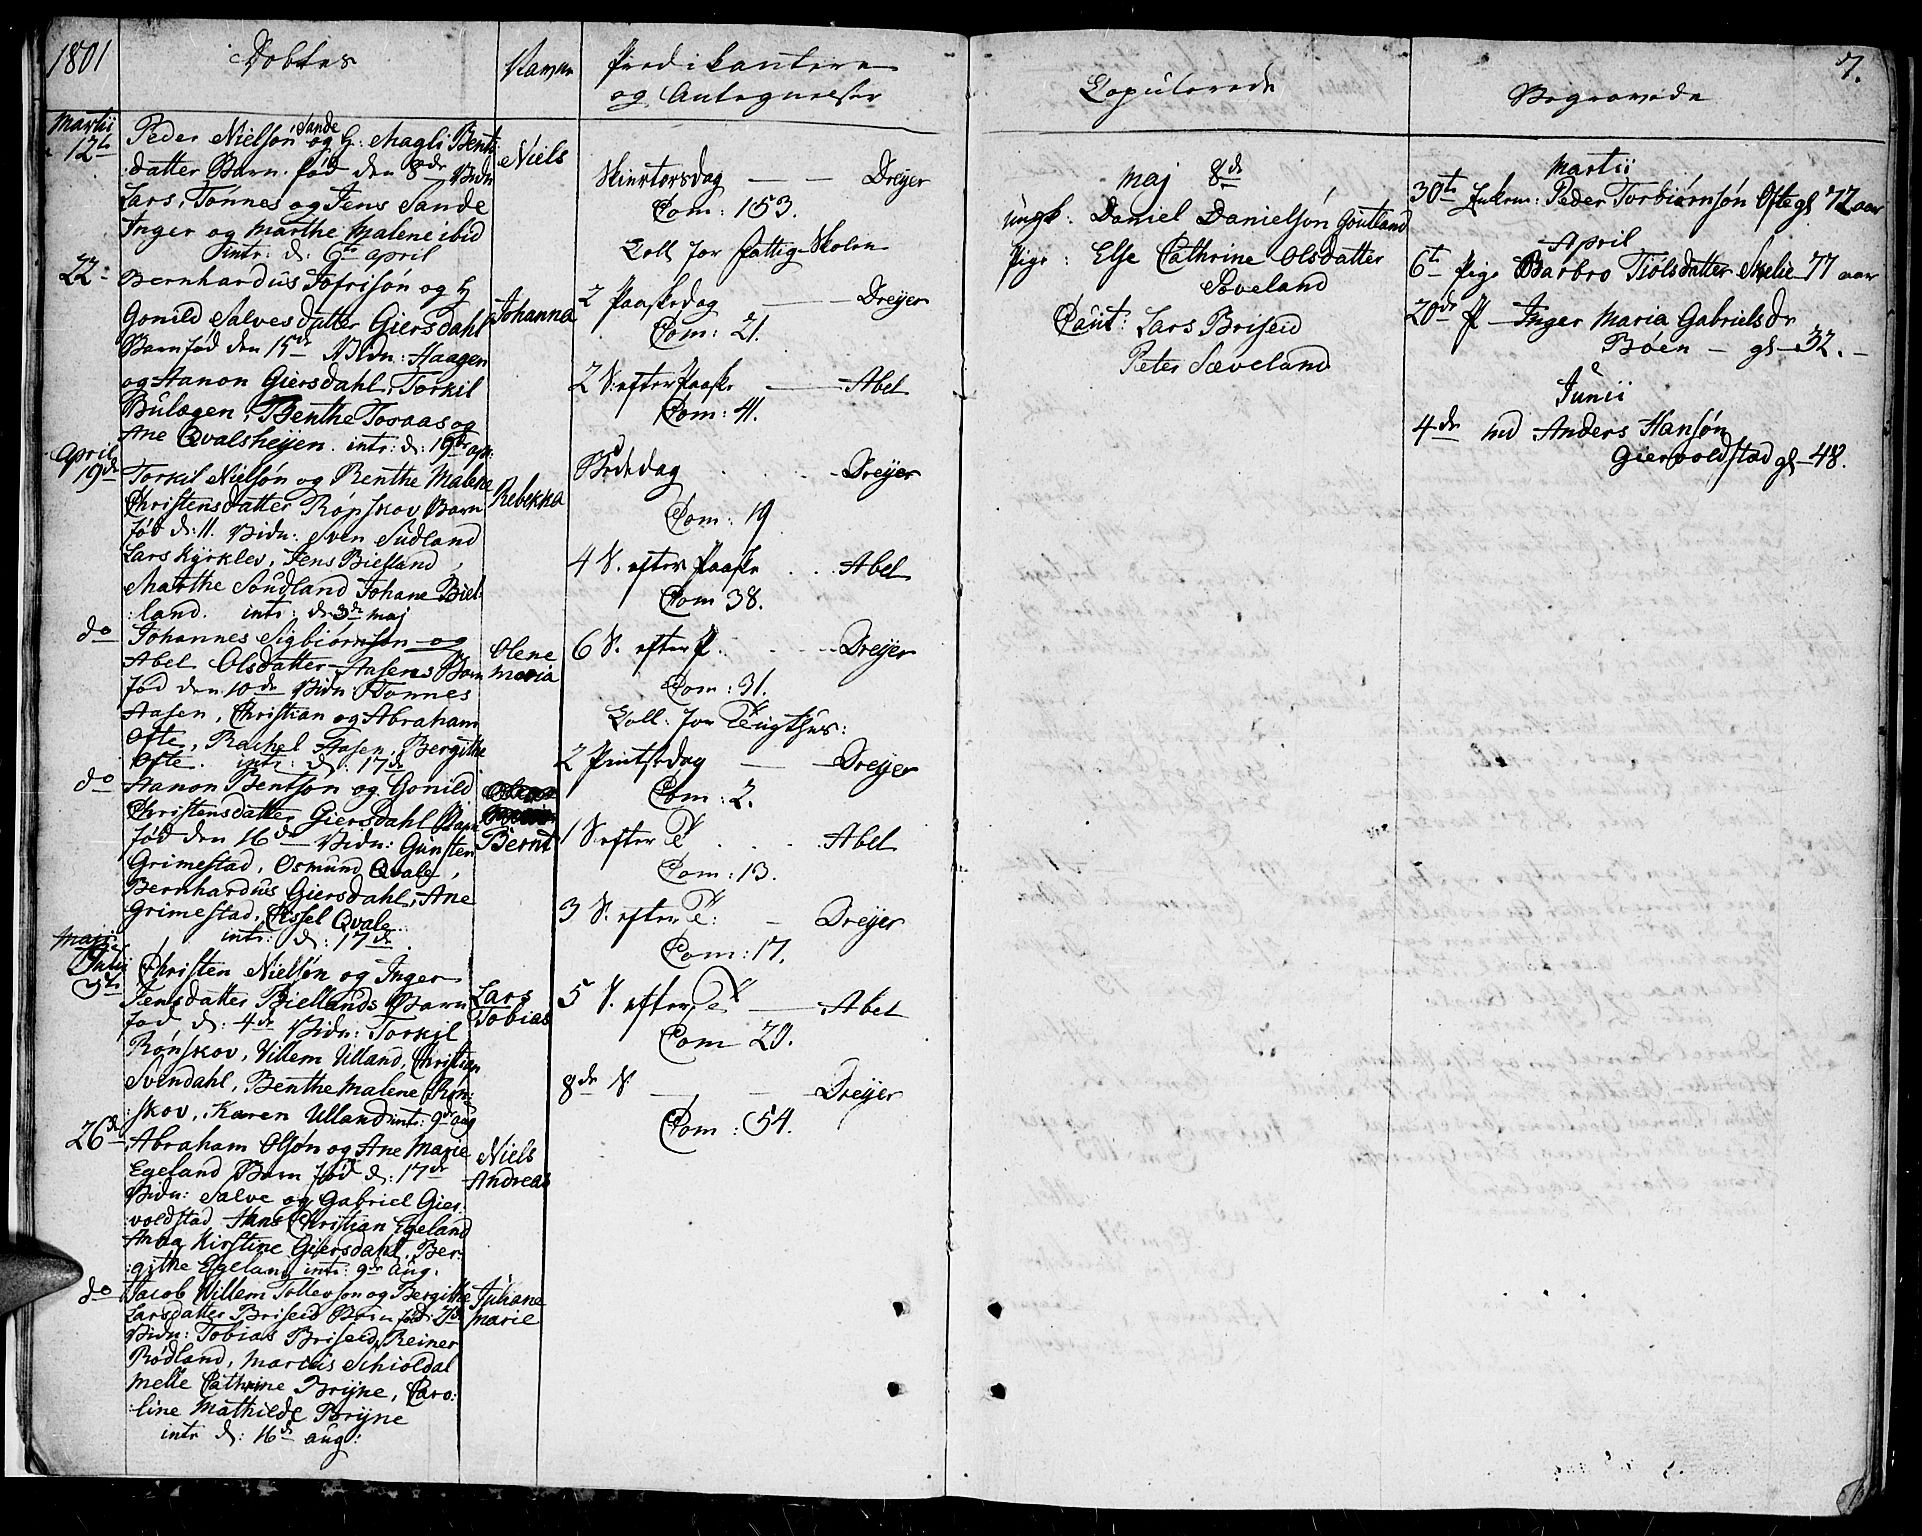 1801
Döbtes
Martii
12te
Peder Nielsön Sande og H: Magli Bents
datter Barn. fød den 8de Vidn
Lars, Tønnes og Jens Sande
Inger og Marthe Malene ibid
intr: d: 6te April
22
Bernhardus Jofrisön og H
Gonild Salvesdatter Giersdahl
Barn fød den 15de Vidn: Haagen
og Hanon Giersdahl, Torkil
Bulægen, Benthe Toraas og
Ane Qvalsheyen. intr: d: 19de ap:
April
19de
Torkil Nielsön og Benthe Malene
Christensdatter Rønskov Barn
fød d: 11. Vidn: Sven Sudland
Lars Kyrklev, Jens Bielland,
Marthe Soudland Johane Biel:
:land. intr: d: 3de maj
do
Johannes Sigbiörnsön og
Abel Olsdatter Aasens Barn
fød den 10de Vidn: Tønnes
Aasen, Christian og Abraham
Ofte, Rachel Aasen, Bergithe
Ofte. intr: d: 17de
do
Hanon Bentsön og Gonild
Christensdatter Giersdahl Barn
fød den 16de Vidn: Gunsten
Grimestad, Osmund Qvale,
Bernhardus Giersdahl, Ane
Grimestad, Sissel Qvale.
intr: d: 17de
Maji
Julii
5te
Christen Nielsön og Inger
Jensdatter Biellands Barn
fød d: 4de Vidn: Torkil
Rønskov, Villem Ulland, Christian
Svindahl, Benthe Malene Røn:
:skov, Karen Ulland intr: 9de aug
26de
Abraham Olsön og Ane Marie
Egeland Barn fød d: 17de
Vidn: Salve og Gabriel Gier:
:voldstad Hans Christian Egeland
Anna Kirstine Giersdahl, Ber:
:githe Egeland intr: 9de Aug.
do
Jacob Willem Tollevson og Bergithe
Larsdatter Briseid Barn fød 7de
Vidn: Tobias Briseid, Reiner
Rødland, Marcus Schioldal
Melle Cathrine Bryne, Caro:
:line Mathilde Bryne
intr d: 16de aug:
Navne
Niels
Johanna
Rebekka
Olene
Maria
Bernt
Lars
Tobias
Niels
Andreas
Juliane
Marie
Predikantere
og Antegnelser
Skiertorsdag — — Dreyer
Com: 153.
Coll for fattig Skolen
2 Paaskedag — Dreyer
Com: 21.
2 S. efter Paaske — Abel
Com: 41.
Bededag — Dreyer
Com: 19
4 S. efter Paaske — Abel
Com 38.
6 S. efter P. — Dreyer
Com: 31.
Coll: for Tugthus:
2 Pintsedag — Dreyer
Com: 2.
1 S. efter T — Abel
Com: 13.
3 S. efter T: — Dreyer
Com: 17.
5 S. efter T — Abel
Com 20.
8de S — Dreyer
Com: 54.
Copulerede
Maj 8de
ungk: Daniel Danielsön Goutland
Pige: Else Cathrine Olsdatter
Soveland
Caut: Lars Briseid
Peter Sæveland
7.
Begravede
Martii
30te Peder Torbiörnsön Ofte gl 72 aar
April
6te Pige Barbro Tiölsdatter Skelie 77 aar
20de P Inger Maria Gabrielsdr
Bøen — gl 32. —
Junii
4de Anders Hansön
Giervoldstad gl 48.